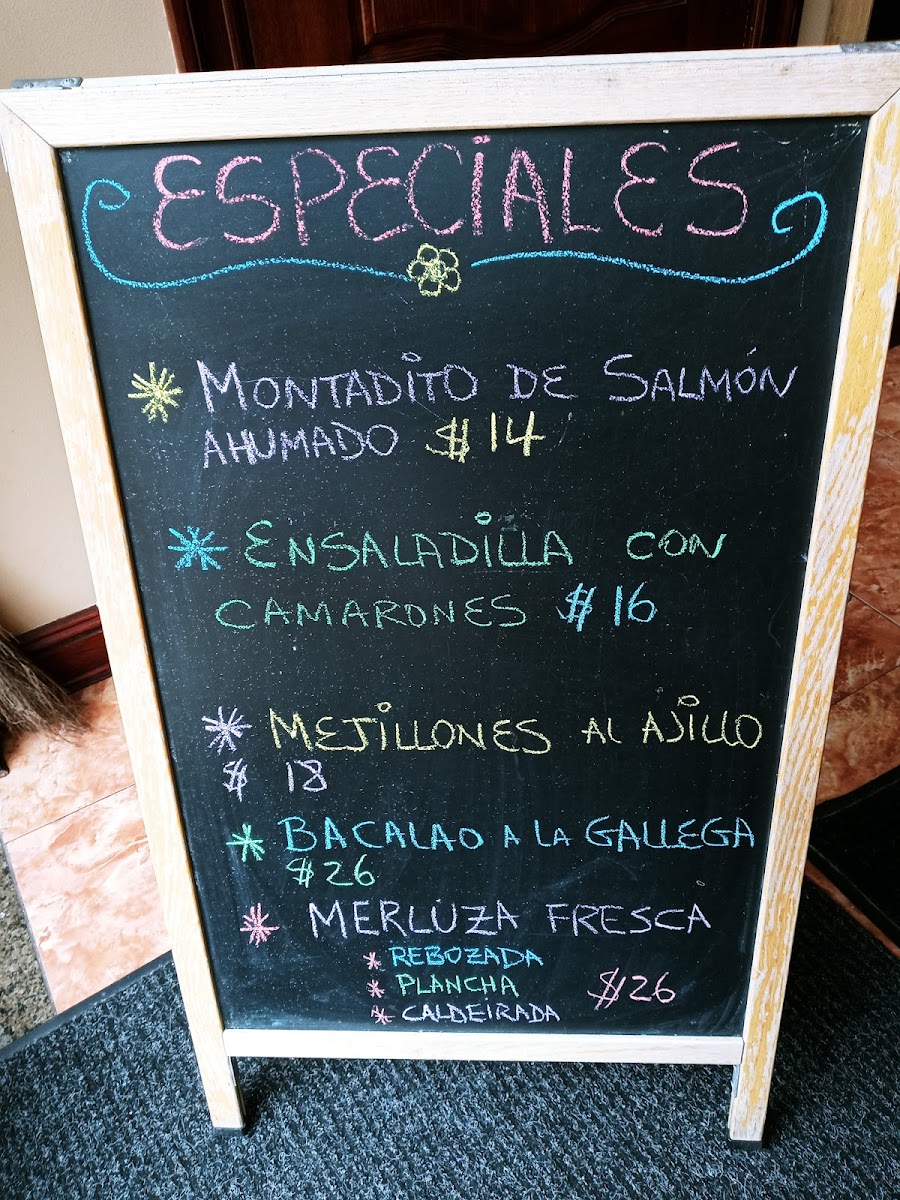 ESPECIALES
MONTADITO DE SALMÓN
AHUMADO $14
ENSALADILLA CON
CAMARONES $16
MEJILLONES AL AJILLO
$ 18
BACALAO A LA GALLEGA
$26
MERLUZA FRESCA
REBOZADA
PLANCHA $26
CALDEIRADA